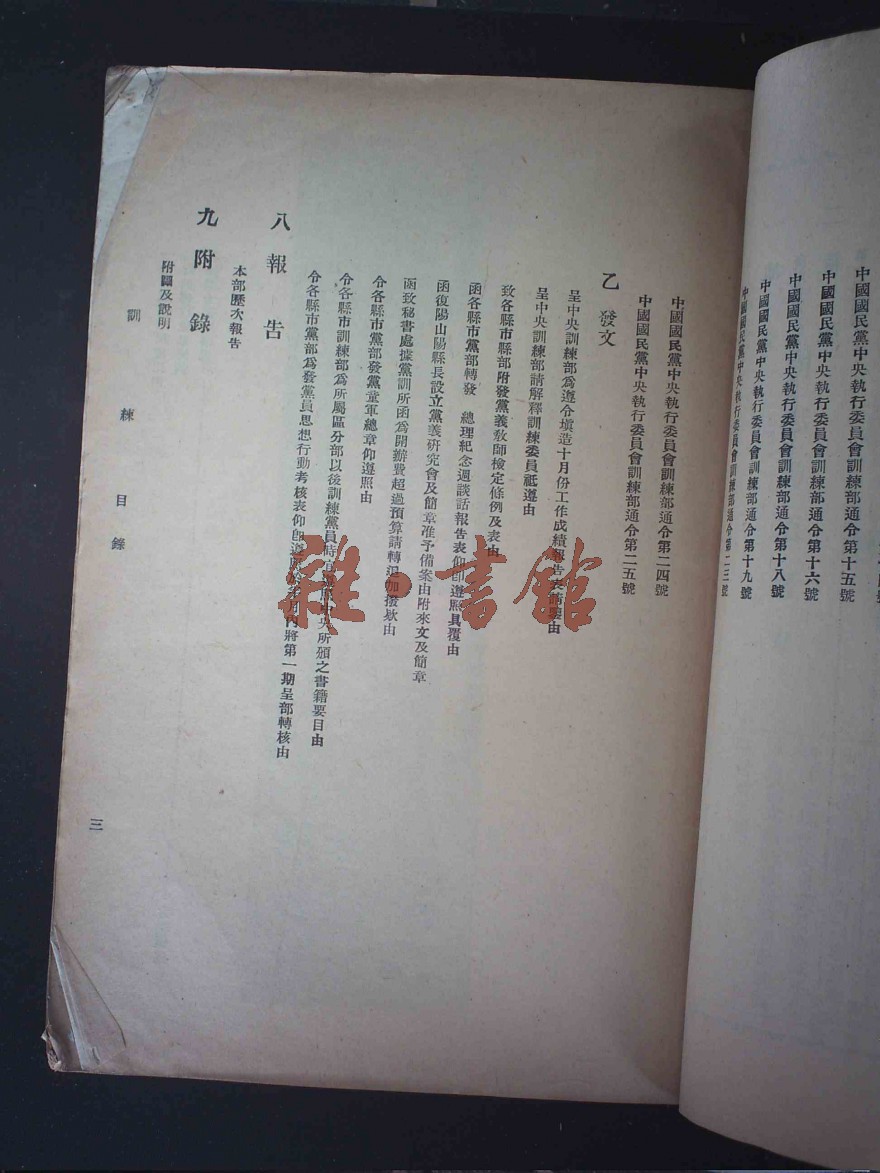 中國國民黨中央執行委員會訓練部通令第十五號
中國國民黨中央執行委員會訓練部通令第十六號
中國國民黨中央執行委員會訓練部通令第十八號
中國國民黨中央執行委員會訓練部通令第十九號
中國國民黨中央執行委員會訓練部通令第二三號
中國國民黨中央執行委員會訓練部通令第二四號
中國國民黨中央執行委員會訓練部通令第二五號
乙 發文
呈中央訓練部爲遵令塡造十月份工作成績報告表請鑒由
呈中央訓練部請解釋訓練委員祗遵由
致各縣市縣部附發黨義教師檢定條例及表由
函各縣市黨部轉發 總理紀念週談話報告表仰卽遵照具覆由
函復陽山陽縣長設立黨義硏究會及簡章准予備案由附來文及簡章
函致秘書處據黨訓所函爲開辦費超過預算請轉追加撥欵由
令各縣市黨部發黨童軍總章仰遵照由
令各縣市訓練部爲所屬區分部以後訓練黨員時 中央所頒之書籍要目由
令各縣市黨部爲發黨員思想行動考核表仰卽遵照 月內將第一期呈部轉核由
八 報 告
本部歷次報告
九 附 錄
附圖及說明
訓 練 目 錄
三
雜·書館